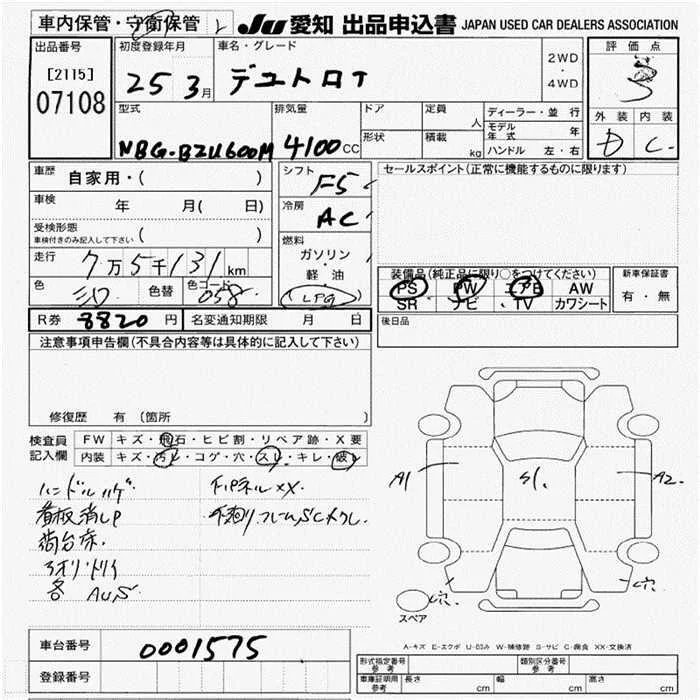 車内保管・守衛保管
JU 愛知 出品申込書 JAPAN USED CAR DEALERS ASSOCIATION
出品番号
[2115]
07108
初度登録年月
25 3月
車名・グレード
デュトロT
2WD
・
4WD
評価点
3
外装 内装
D C
型式
NBG-BZU600M
排気量
4100cc
ドア
形状
定員
人
積載
kg
ディーラー・並行
モデル年式 年
ハンドル 左・右
車歴
自家用・( )
車検
年 月( 日)
受検形態
車検付きのみ記入して下さい ( )
走行
7万5千131km
色
色替
色コード
058
シフト
F5
冷房
AC
燃料
ガソリン
・
軽油
(LPG)
セールスポイント(正常に機能するものに限ります)
装備品(純正品に限り○をつけてください)
PS PW エアB AW
SR ナビ TV カワシート
新車保証書
有・無
後日品
R券 8820円
名変通知期限 月 日
注意事項申告欄(不具合内容等は具体的に記入して下さい)
修復歴 有(箇所 )
検査員
記入欄
FW キズ・飛石・ヒビ割・リペア跡・X要
内装 キズ・汚レ・コゲ・穴・スレ・キレ・破レ
ハンドルハゲ
FパネルXX
看板消しP
下廻リ、フレームSCメクレ.
荷台床.
アオリ・トリイ
各 AUS
A1
S1.
A2
穴
穴
スペア
A-キズ E-エクボ U-凹み W-補修跡 S-サビ C-腐食 XX-交換済
車台番号 0001575
登録番号
形式指定番号 参考
類別区分番号 参考
車庫証明用 参考
長さ cm
幅 cm
高さ cm